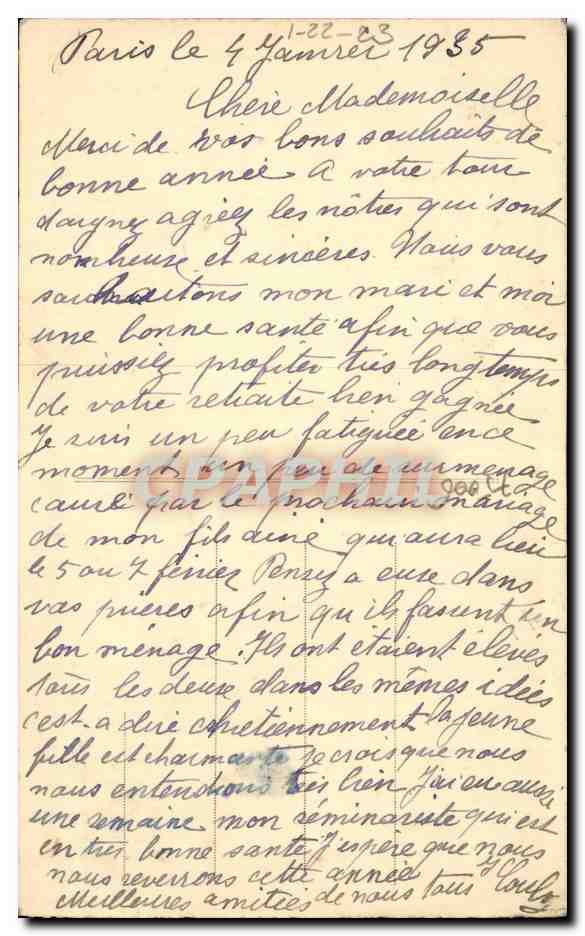 1-22-23
Paris le 4 Janvier 1935
Chère Mademoiselle
Merci de vos bons souhaits de
bonne année a votre tour
daignez agréez les nôtres qui sont
nombreux et sincères. Nous vous
souhaitons mon mari et moi
une bonne santé afin que vous
puissiez profiter très longtemps
de votre retraite bien gagnée
Je suis un peu fatiguée en ce
moment, un peu de surmenage
causé par le prochain mariage
de mon fils ainé qui aura lieu
le 5 ou 7 février Pensez a eux dans
vos prières afin qu'ils fassent un
bon ménage. Ils ont étaient élevés
tous les deux dans les mêmes idées
c'est-a dire chrétiennement la jeune
fille est charmante je crois que nous
nous entendrons très bien J'ai eu aussi
une semaine mon séminariste qui est
en très bonne santé J'espère que nous
nous reverrons cette année
Meilleures amitiés de nous tous
CPAPHIL